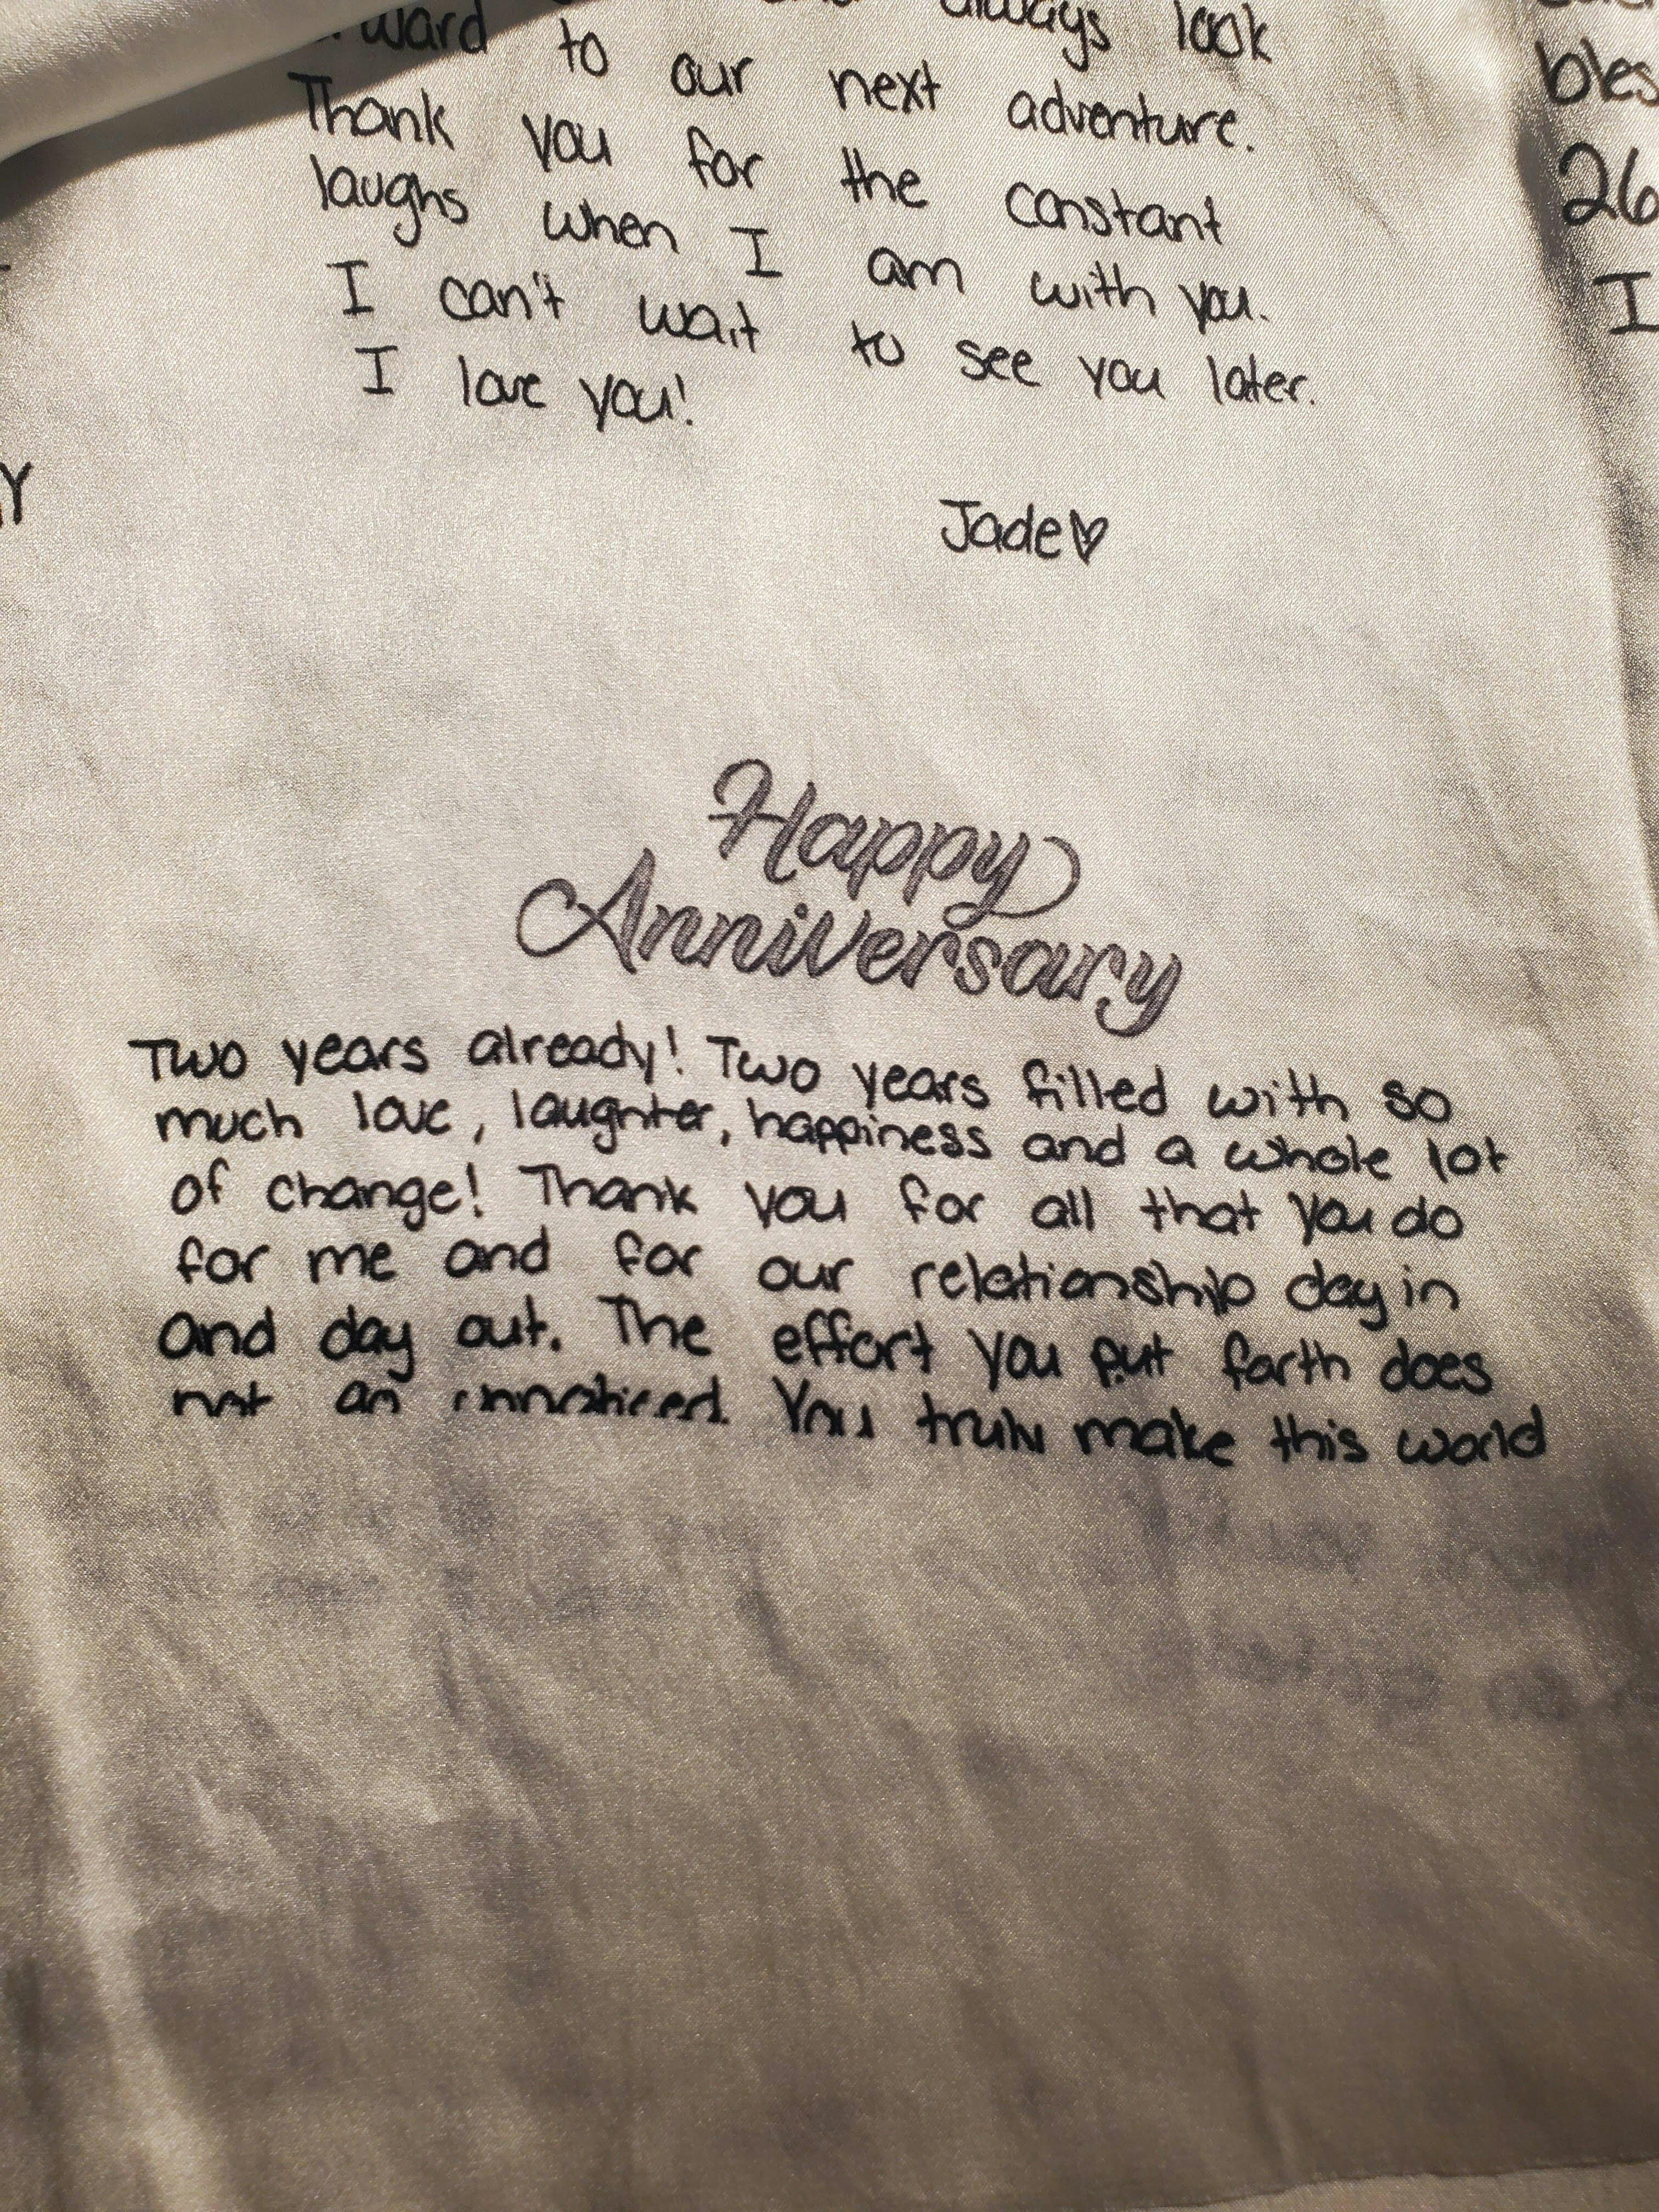 always look
to our next adventure.
Thank you for the constant
laughs when I am with you.
I can't wait to see you later.
I love you!
Jade♡
Happy
Anniversary
Two years already! Two years filled with so
much love, laughter, happiness and a whole lot
of change! Thank you for all that you do
for me and for our relationship day in
and day out. The effort you put forth does
not go unnoticed. You truly make this world
26
I